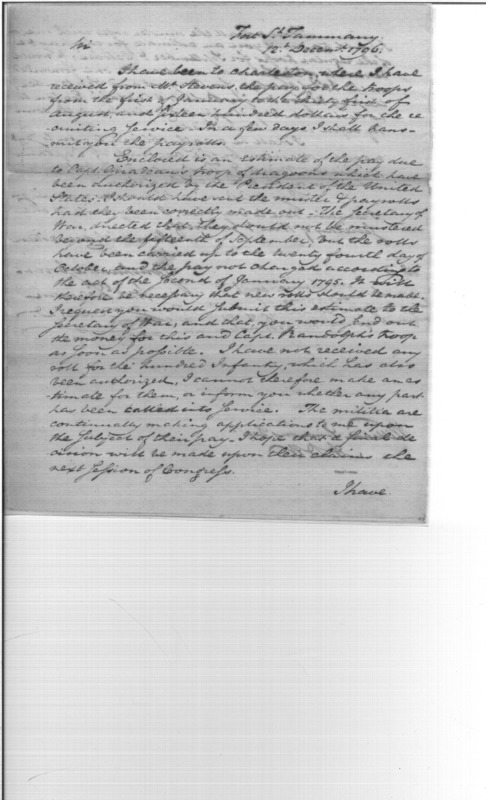 Fort St. Tammany
12th Decemr. 1796.
Sir
I have been to Charleston, where I have
received from Mr. Stevens, the pay for the troops
from the first of January to the thirty first of
August, and sixteen hundred dollars for the re
cruiting service. In a few days I shall trans-
mit you the payrolls.
Enclosed is an estimate of the pay due
to Capt. troop of dragoons which have
been authorized by the President of the United
States. I should have sent the muster & payrolls
had they been correctly made out. The Secretary of
War, directed that they should not be mustered
beyond the fifteenth of September, but the rolls
have been carried up to the twenty fourth day of
October, and the pay not changed according to
the act of the second of January 1795. It will
therefore be necessary that new rolls should be made.
I request you would submit this estimate to the
Secretary of War, and that you would send out
the money for this and Capt. Randolph's troop
as soon as possible. I have not received any
roll for the hundred Infantry, which has also
been authorized, I cannot therefore make an es
timate for them, or inform you whether any part
has been called into service. The militia are
continually making applications to me upon
the subject of their pay. I hope that a final de
cision will be made upon their claims the
next session of Congress.
I have